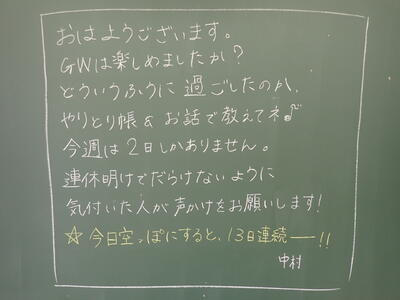 おはようございます。
GWは楽しめましたか?
どういうふうに過ごしたのか、
やりとり帳&お話で教えてネ♪
今週は2日しかありません。
連休明けでだらけないように
気付いた人が声かけをお願いします!
☆今日空っぽにすると、13日連続――!!
中村